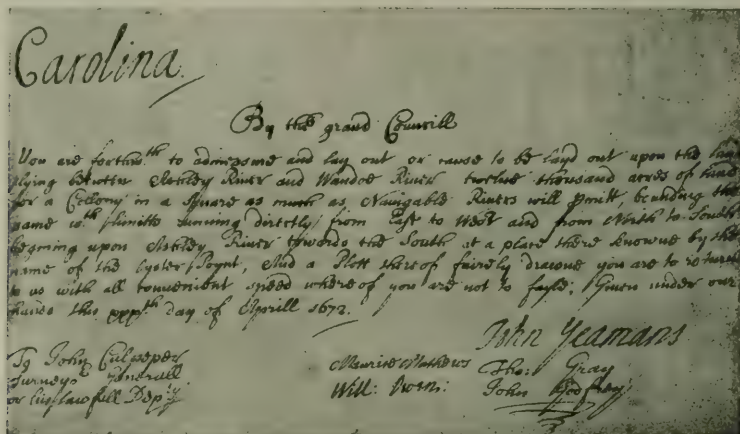 Carolina
By the grand Councill
You are forthwth to admeasure and lay out or cause to be layd out upon the land
lying betwen Ashley River and Wandoe River twelve thousand acres of land
for a Collony in a square as much as Navigable Rivers will pmitt, bounding the
same wth lines running directly from East to West and from North to South
begining upon Ashley River towards the South at a place there knowne by the
name of the Oyster Poynt, And a Plott thereof fairely drawne you are to returne
to us with all convenient speed whereof you are not to fayle; Given under our
hands this xxxth day of Aprill 1672.
John Yeamans
To John Culpeper
Surveyr Generall
or his lawfull Depty
Maurice Mathews
Will: Owen:
Tho: Gray
John Godfrey